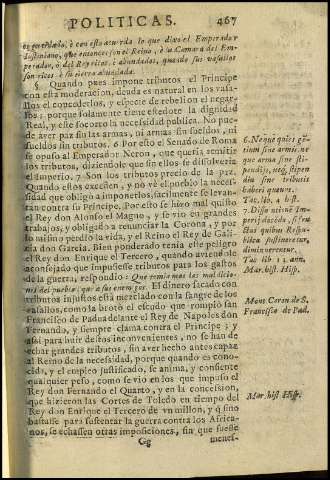 POLITICAS. 467
es gereñdado, è con esto acuerda lo que dixo el Emperador
Iustiniano, que entonces son el Reino, è la Camara del Em-
perador, ò del Rey ricos, è abundados, quando sus vasallos
son ricos, è su tierra abundada.
§. Quando pues impone tributos el Principe
con esta moderacion, deuda es natural en los vasa-
llos el concederlos, y especie de rebelion el negar-
los; porque solamente tiene este dote la dignidad
Real, y este socorro la necessidad publica. No pue-
de aver paz sin las armas, ni armas sin sueldos, ni
sueldos sin tributos. 6 Por esto el Senado de Roma
se opuso al Emperador Neron, que queria remitir
los tributos, diziendole que sin ellos se dissolveria
el Imperio. 7 Son los tributos precio de la paz.
Quando estos exceden, y no vè el pueblo la necessi-
dad que obligò a imponerlos, facilmente se levan-
ta contra su Principe. Por esto se hizo mal quisto
el Rey don Alonso el Magno, y se vio en grandes
trabajos, y obligado a renunciar la Corona, y por
lo mismo perdio la vida, y el Reino el Rey de Gali-
zia don Garcia. Bien ponderado tenia este peligro
el Rey don Enrique el Tercero, quando aviendole
aconsejado que impusiesse tributos para los gastos
de la guerra, respondio: Que temia mas las maldicio-
nes del pueblo, que a sus enemigos. El dinero sacado con
tributos injustos està mezclado con la sangre de los
vasallos, como la brotò el escudo que rompio san
Francisco de Padua delante el Rey de Napoles don
Fernando, y siempre clama contra el Principe; y
assi para huir destos inconvenientes, no se han de
echar grandes tributos, sin aver hecho antes capaz
al Reino de la necessidad, porque quando es cono-
cida, y el empleo justificado, se anima, y consiente
qualquier peso, como se vio en los que impuso el
Rey don Fernando el Quarto, y en la concession,
que hizieron las Cortes de Toledo en tiempo del
Rey don Enrique el Tercero de vn millon, y q̃ sino
bastasse para sustentar la guerra contra los Africa-
nos, se echassen otras imposiciones, sin que fuesse
Gg menes-
6. Neque quies gẽ-
tium sine armis, ne
que arma sine sti-
pendijs, neq; stipen
dia sine tributis
haberi queunt.
Tac. lib. 4. hist.
7. Dissolutionẽ Im-
perij docendo, si fru
ctus quibus Respu-
blica sustineretur,
diminuerentur.
Tac. lib. 13. ann.
Mar. hist. Hisp.
Mons. Caron de S.
Francisco de Pad.
Mar. hist. Hisp.